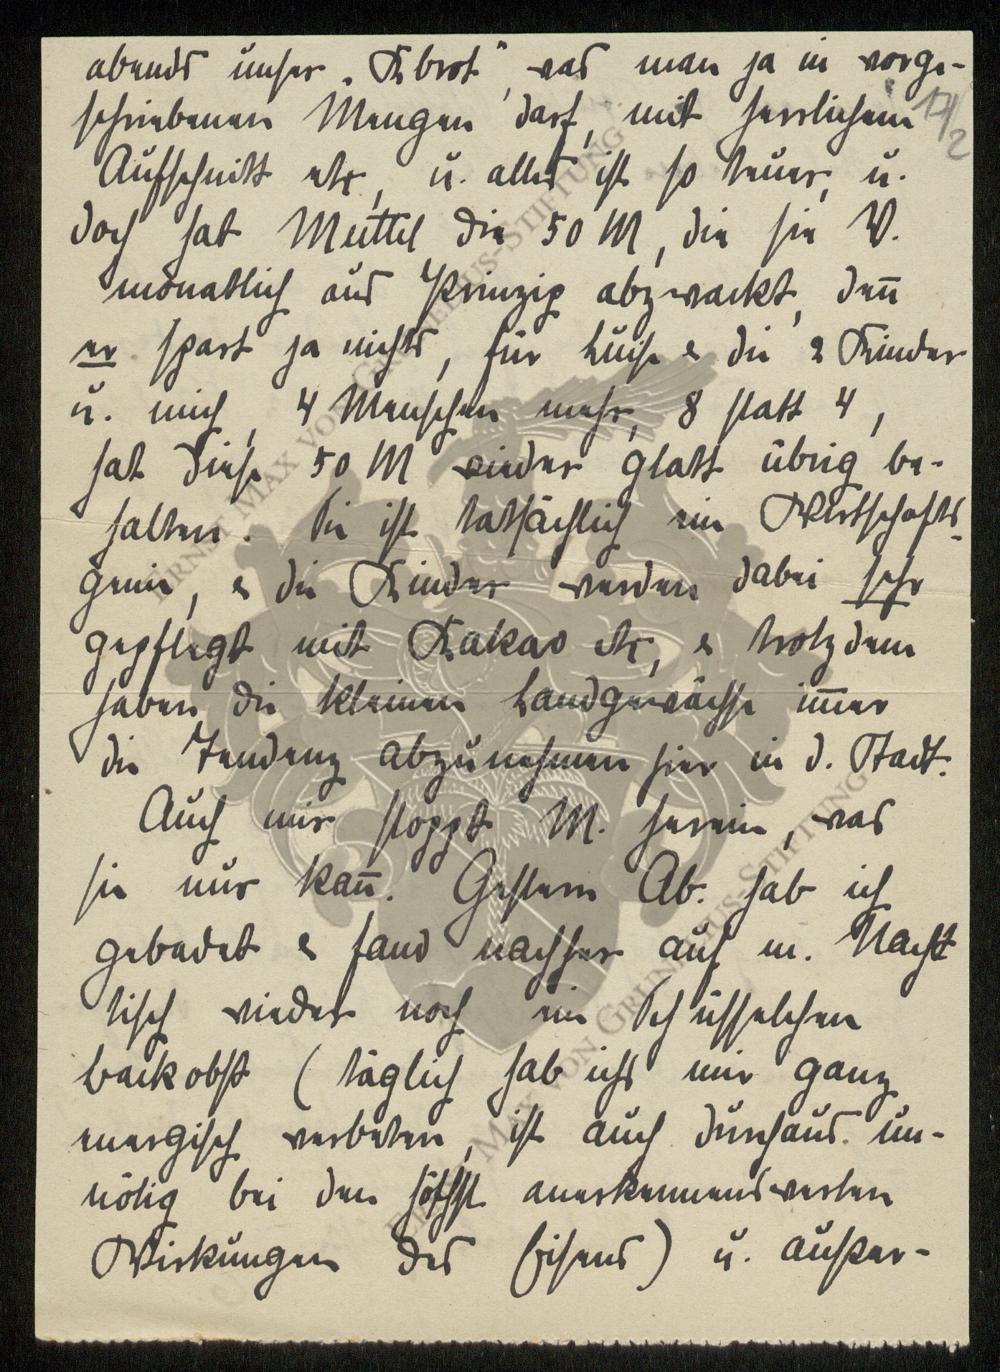 abends unser "Kbrot", was man ja in vorge-
schriebenen Mengen darf, mit herrlichem
Aufschnitt etc, u. alles ist so teuer, u.
doch hat Muttel die 50 M, die sie V.
monatlich aus Prinzip abzwackt, deñ
er spart ja nichts, für Luise & die 2 Kinder
u. mich, 4 Menschen mehr, 8 statt 4,
hat diese 50 M wieder glatt übrig be-
halten. Sie ist tatsächlich ein Wirtschafts-
genie, & die Kinder werden dabei sehr
gepflegt mit Kakao etc, & trotzdem
haben die kleinen Landgewächse im̃er
die Tendenz abzunehmen hier in d. Stadt.
Auch mir stoppt M. herein, was
sie nur kañ. Gestern Ab. hab ich
gebadet & fand nachher auf m. Nacht
tisch wieder noch ein Schüsselchen
Backobst (täglich hab ichs mir ganz
energisch verbeten, ist auch durchaus un-
nötig bei den höchst anerkennenswerten
Wirkungen des Eisens) u. außer-
ERNST MAX VON GRUNELIUS-STIFTUNG
ERNST MAX VON GRUNELIUS-STIFTUNG